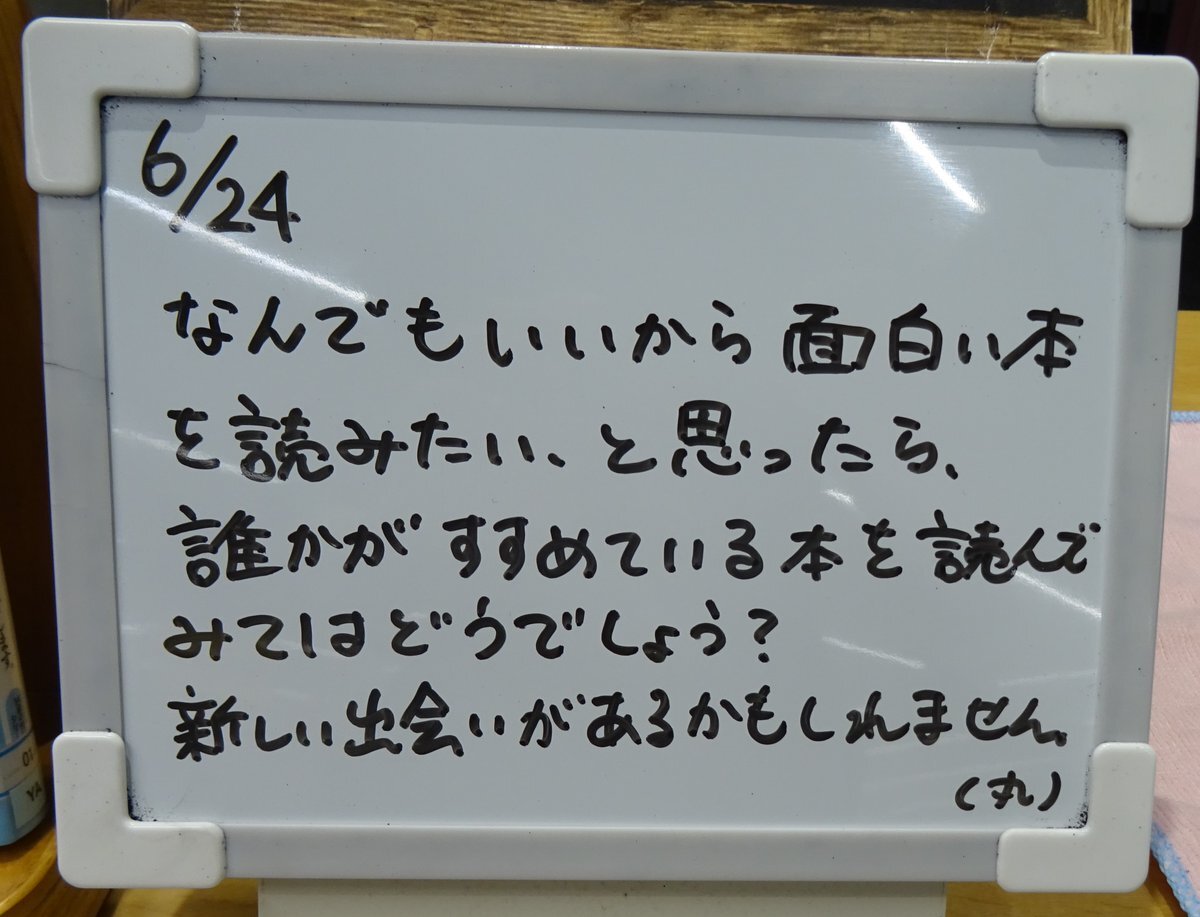 6/24
なんでもいいから面白い本
を読みたい、と思ったら、
誰かがすすめている本を読んで
みてはどうでしょう?
新しい出会いがあるかもしれません。
(丸)
01
YA